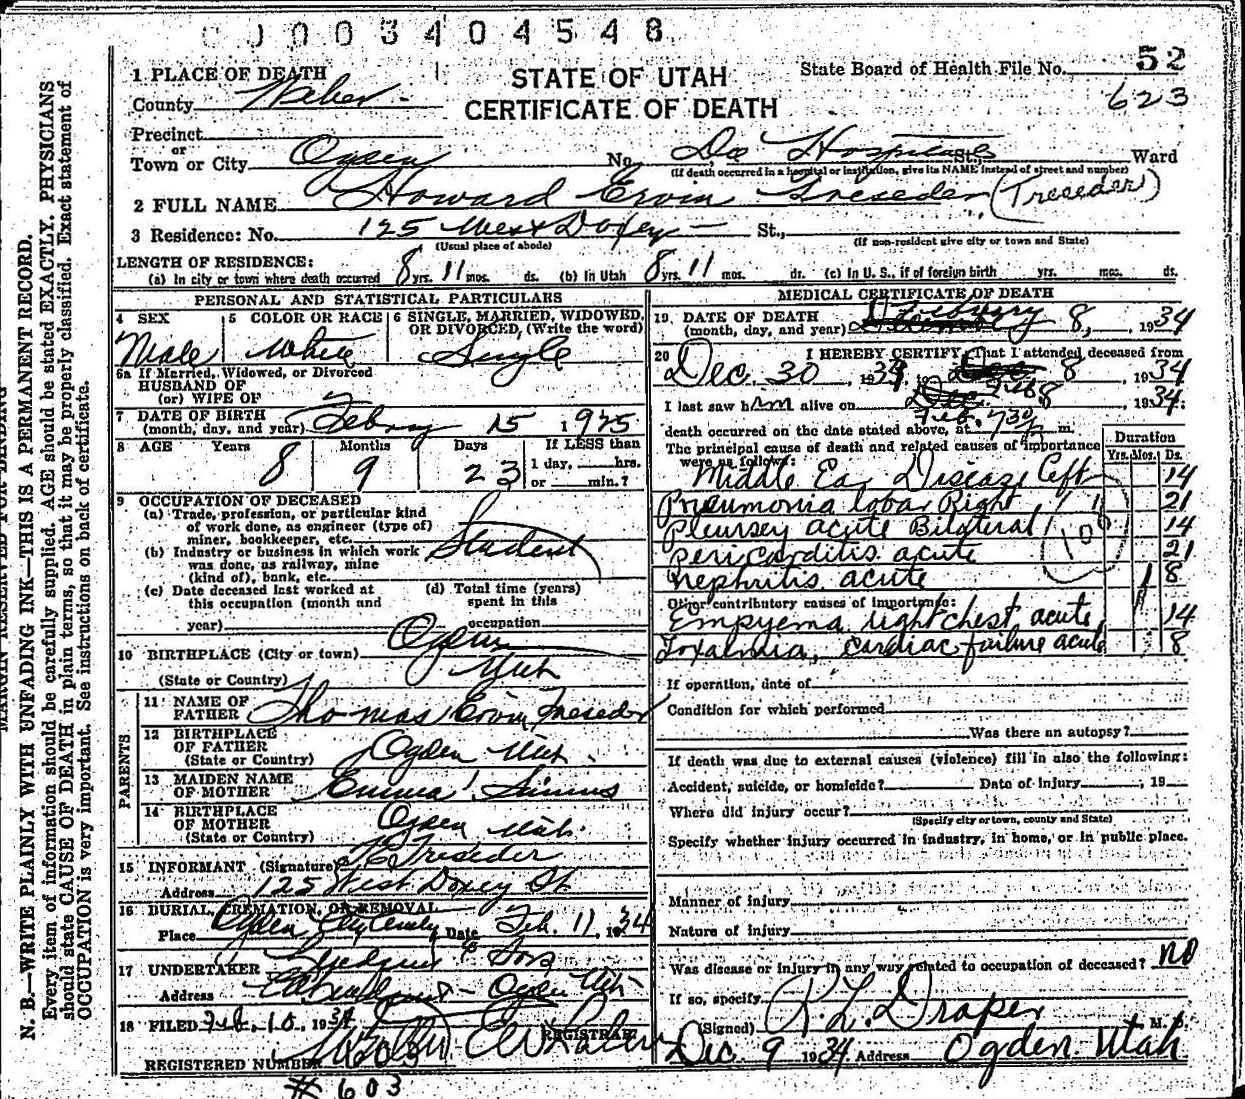 0003404548
1 PLACE OF DEATH
STATE OF UTAH
CERTIFICATE OF DEATH
State Board of Health File No. 52
623
County Weber
Precinct
or
Town or City Ogden No. Dee Hospital St., Ward
(If death occurred in a hospital or institution, give its NAME instead of street and number)
2 FULL NAME Howard Ervin Treseder (Treseder)
3 Residence: No. 125 West Doxey St.,
(Usual place of abode) (If non-resident give city or town and State)
LENGTH OF RESIDENCE:
(a) In city or town where death occurred 8 yrs. 11 mos. ds. (b) In Utah 8 yrs. 11 mos. ds. (c) In U. S., if of foreign birth yrs. mos. ds.
PERSONAL AND STATISTICAL PARTICULARS
4 SEX 5 COLOR OR RACE 6 SINGLE, MARRIED, WIDOWED, OR DIVORCED, (Write the word)
Male White Single
6a If Married, Widowed, or Divorced
HUSBAND OF
(or) WIFE OF
7 DATE OF BIRTH
(month, day, and year) 15 1925
8 AGE Years Months Days If LESS than
8 9 23 1 day, hrs.
or min.?
9 OCCUPATION OF DECEASED
(a) Trade, profession, or particular kind
of work done, as engineer (type of)
miner, bookkeeper, etc.
Student
(b) Industry or business in which work
was done, as railway, mine
(kind of), bank, etc.
(c) Date deceased last worked at
this occupation (month and
year)
(d) Total time (years)
spent in this
occupation
10 BIRTHPLACE (City or town) Ogden
(State or Country) Utah
PARENTS
11 NAME OF
FATHER Thomas Ervin Treseder
12 BIRTHPLACE
OF FATHER
(State or Country) Ogden Utah.
13 MAIDEN NAME
OF MOTHER Emma Simms
14 BIRTHPLACE
OF MOTHER
(State or Country) Ogden Utah.
15 INFORMANT (Signature) Treseder
Address 125 West Doxey St.
16 BURIAL, CREMATION, OR REMOVAL
Place Ogden City Date Feb. 11, 1934
17 UNDERTAKER & Sons
Address Ogden Utah
18 FILED Feb. 10, 1934
REGISTRAR
REGISTERED NUMBER
# 603
MEDICAL CERTIFICATE OF DEATH
19 DATE OF DEATH
(month, day, and year) February 8, 1934
20 I HEREBY CERTIFY, That I attended deceased from
Dec. 30 8, 1934
I last saw him alive on Feb 8, 1934:
death occurred on the date stated above, at m.
The principal cause of death and related causes of importance
were as follows:
Duration
Yrs. Mos. Ds.
Middle Ear Disease left 14
Pneumonia lobar Right 21
Pleursey acute Bilateral 14
pericarditis acute 21
Nephritis acute 8
Other contributory causes of importance:
Empyema right chest acute 14
Toxaemia, cardiac failure acute 8
If operation, date of
Condition for which performed
Was there an autopsy?
If death was due to external causes (violence) fill in also the following:
Accident, suicide, or homicide? Date of injury , 19
Where did injury occur?
(Specify city or town, county and State)
Specify whether injury occurred in industry, in home, or in public place.
Manner of injury
Nature of injury
Was disease or injury in any way related to occupation of deceased? no
If so, specify
(Signed) R. L. Draper M. D.
Dec. 9 1934 Address Ogden Utah
MARGIN RESERVED FOR BINDING
N. B.—WRITE PLAINLY WITH UNFADING INK—THIS IS A PERMANENT RECORD.
Every item of information should be carefully supplied. AGE should be stated EXACTLY. PHYSICIANS
should state CAUSE OF DEATH in plain terms, so that it may be properly classified. Exact statement of
OCCUPATION is very important. See instructions on back of certificate.